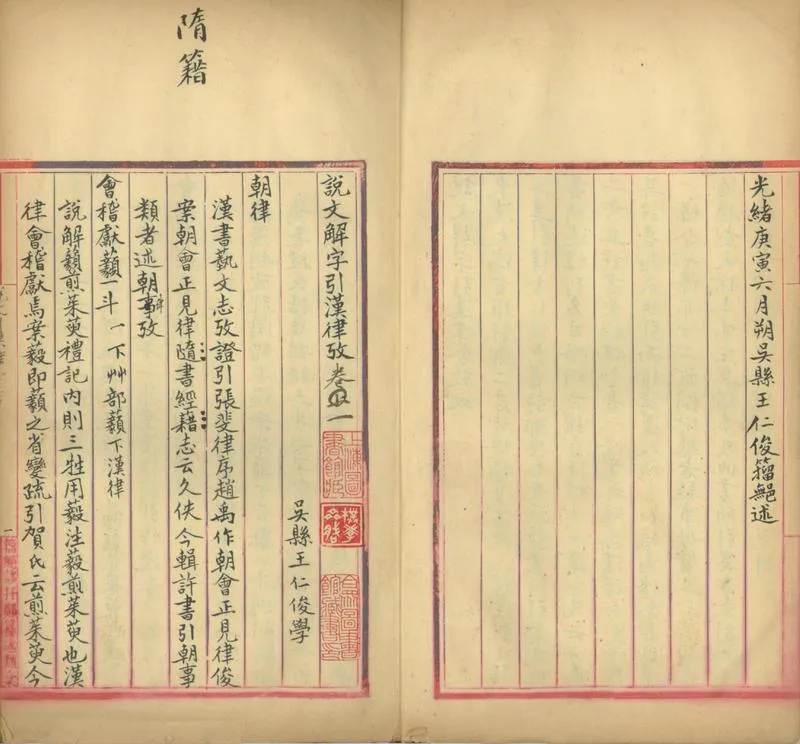 光緒庚寅六月朔吳縣王仁俊籀䣭述
隋籍
說文解字引漢律攷卷一
吳縣王仁俊學
朝律
漢書藝文志攷證引張斐律序趙禹作朝會正見律俊
案朝會正見律隨書經藉志云久佚今輯許書引朝事
類者述朝事律攷
會稽獻藙一斗 一下艸部藙下漢律
說解藙煎茱萸禮記內則三牲用藙注藙煎茱萸也漢
律會稽獻焉案藙即藙之省變疏引賀氏云煎茱萸今